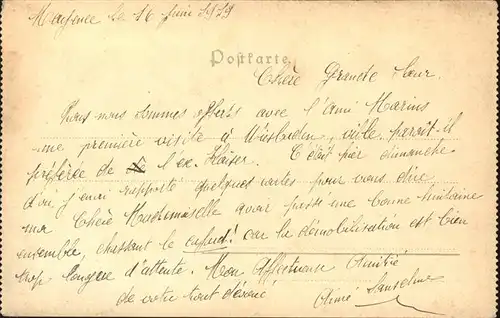 Mayence le 16 Juin 1919
Postkarte
Chère Grande Sœur.
Nous nous sommes offerts avec l'ami Marius
une première visite à Wiesbaden, ville paraît-il
préférée de l'ex Kaiser. C'était hier dimanche
d'où j'en ai rapporté quelques cartes pour vous dire
ma Chère Mademoiselle avoir passé une bonne
ensemble, chassant le cafard! car la démobilisation est bien
trop longue d'attente. Mon Affectueuse Amitié.
de votre tout dévoué
Aimé